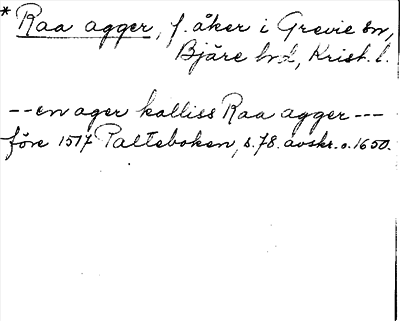 * Raa agger, f. åker i Grevie sn,
Bjäre hd, Krist. l.
--en ager kalliss Raa agger---
före 1517 Palteboken, s. 78. avskr. o. 1650.